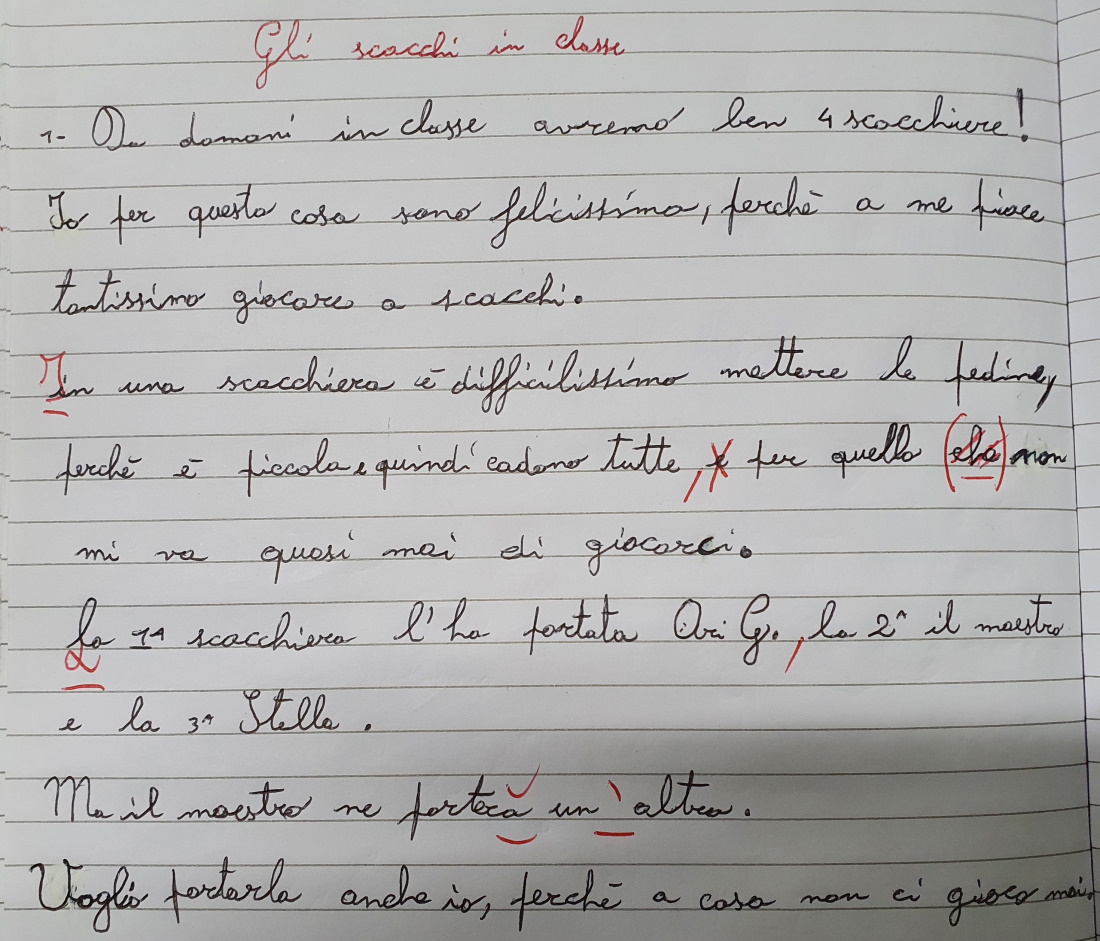 Gli scacchi in classe
1- Da domani in classe avremo ben 4 scacchiere!
Io per questa cosa sono felicissima, perchè a me piace
tantissimo giocare a scacchi.
In una scacchiera è difficilissimo mettere le pedine,
perchè è piccola e quindi cadono tutte, e per quello (che) non
mi va quasi mai di giocarci.
La 1ª scacchiera l'ha portata Ari G., la 2ª il maestro
e la 3ª Stella.
Ma il maestro ne porterà un'altra.
Voglio portarla anche io, perchè a casa non ci gioco mai.